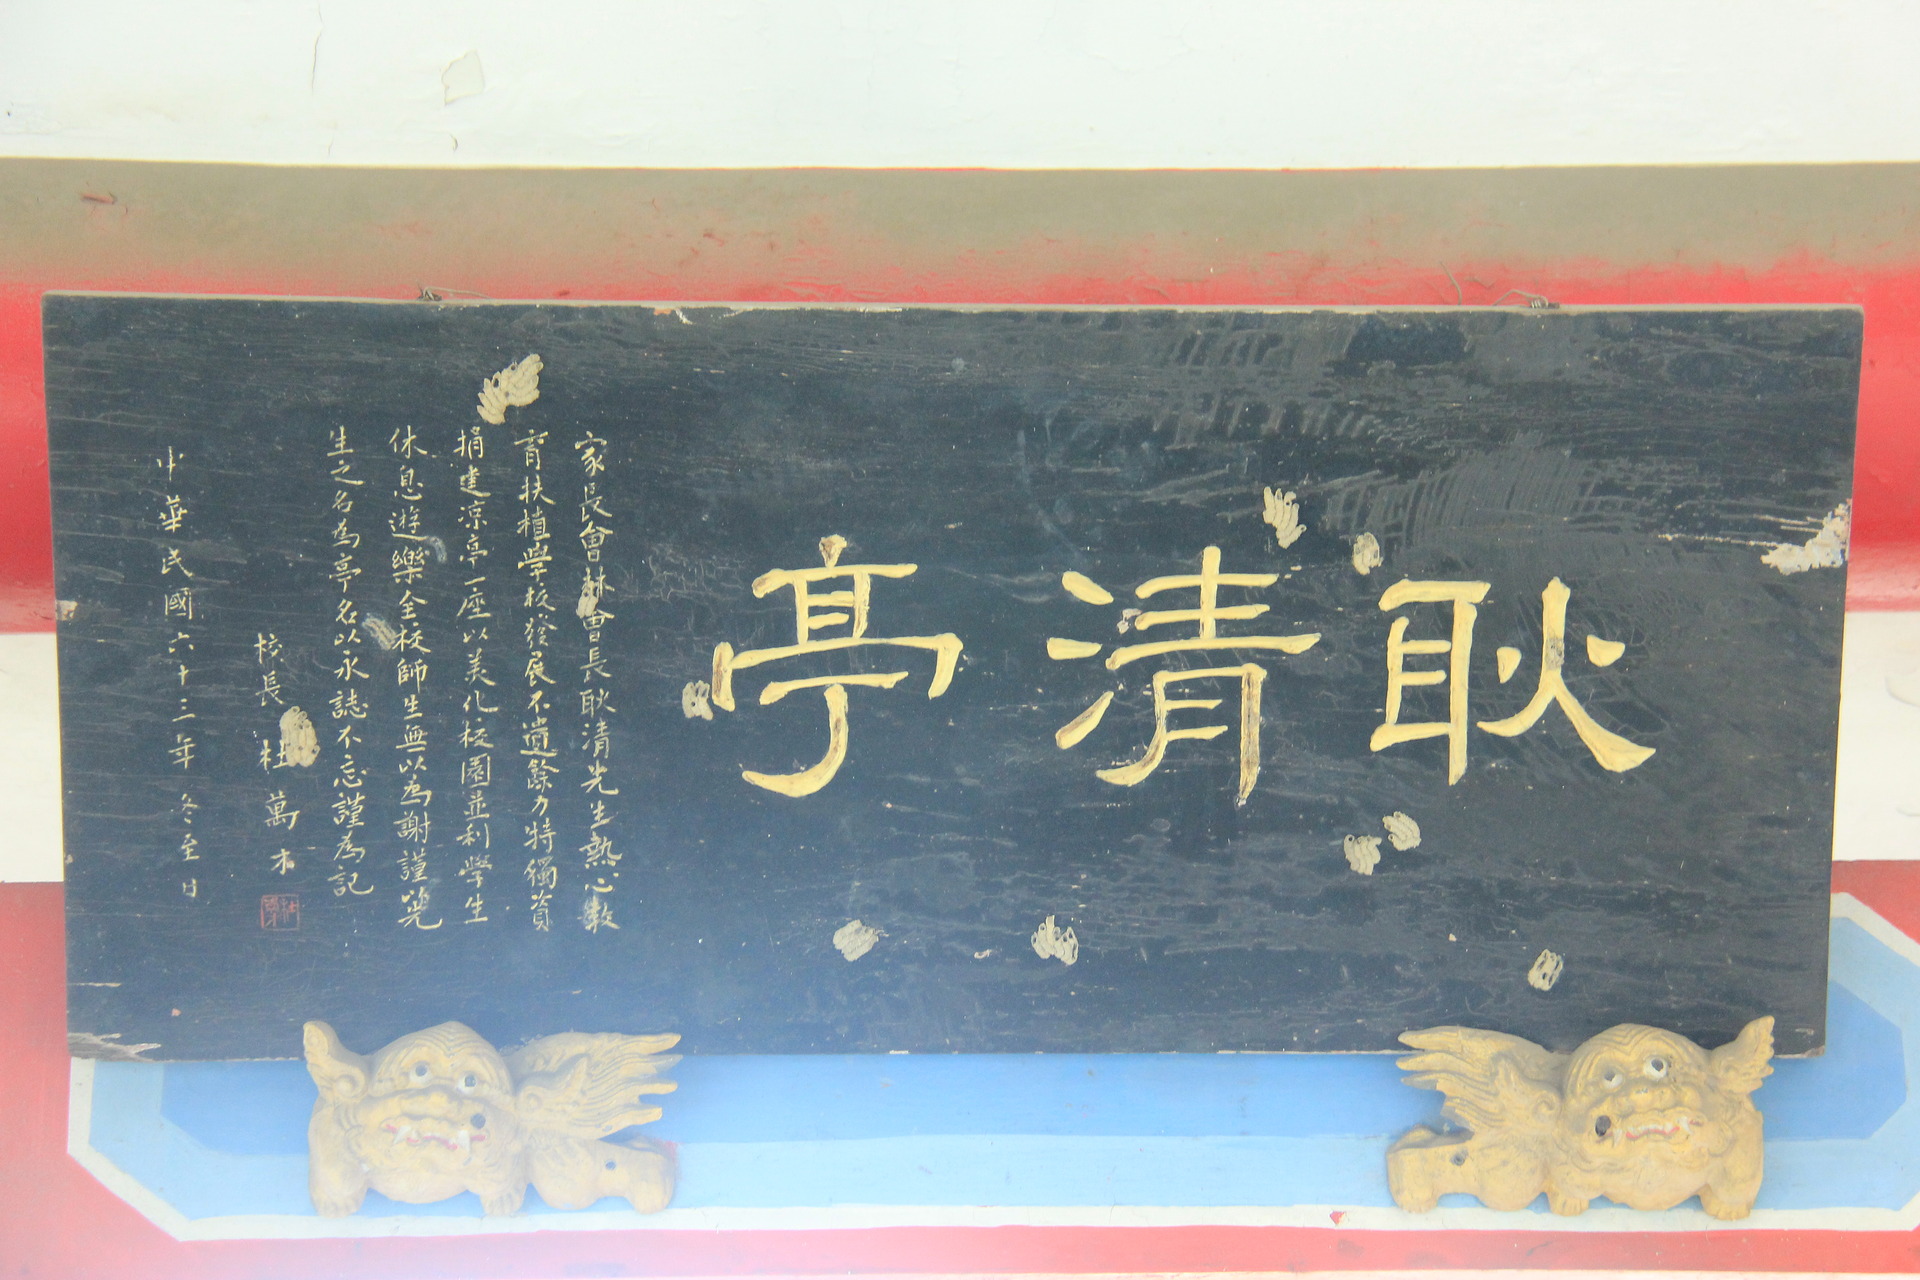 耿清亭
家長會林會長耿清先生熱心教
育扶植學校發展不遺餘力特獨資
捐建涼亭一座以美化校園並利學生
休息遊樂全校師生無以為謝謹以先
生之名為亭名以永誌不忘謹為記
校長 杜萬木
中華民國六十三年 冬至日